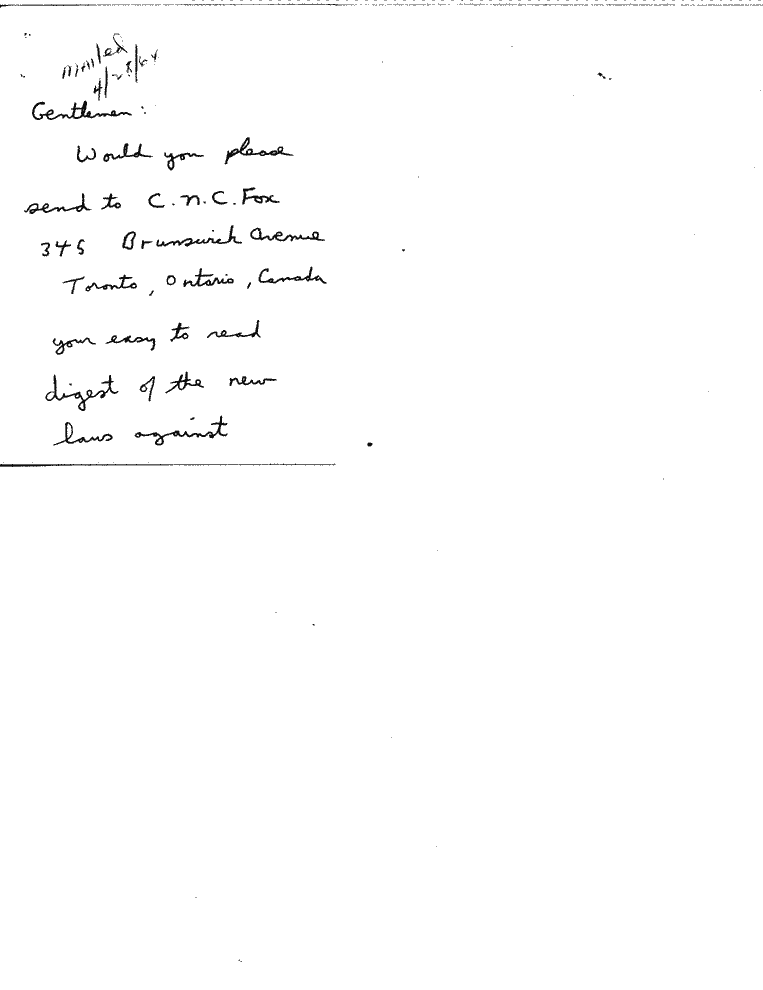 mailed
4/28/64
Gentlemen:
Would you please
send to C.N.C. Fox
345 Brunswick Avenue
Toronto, Ontario, Canada
your easy to read
digest of the new
laws against